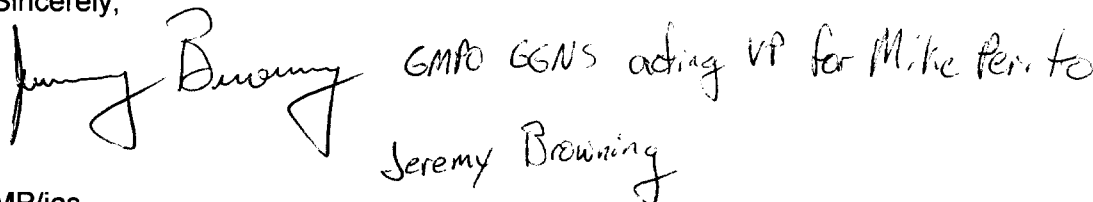 Sincerely,
Jeremy Browning GMPO GGNS acting VP for Mike Perito
Jeremy Browning
MP/jas